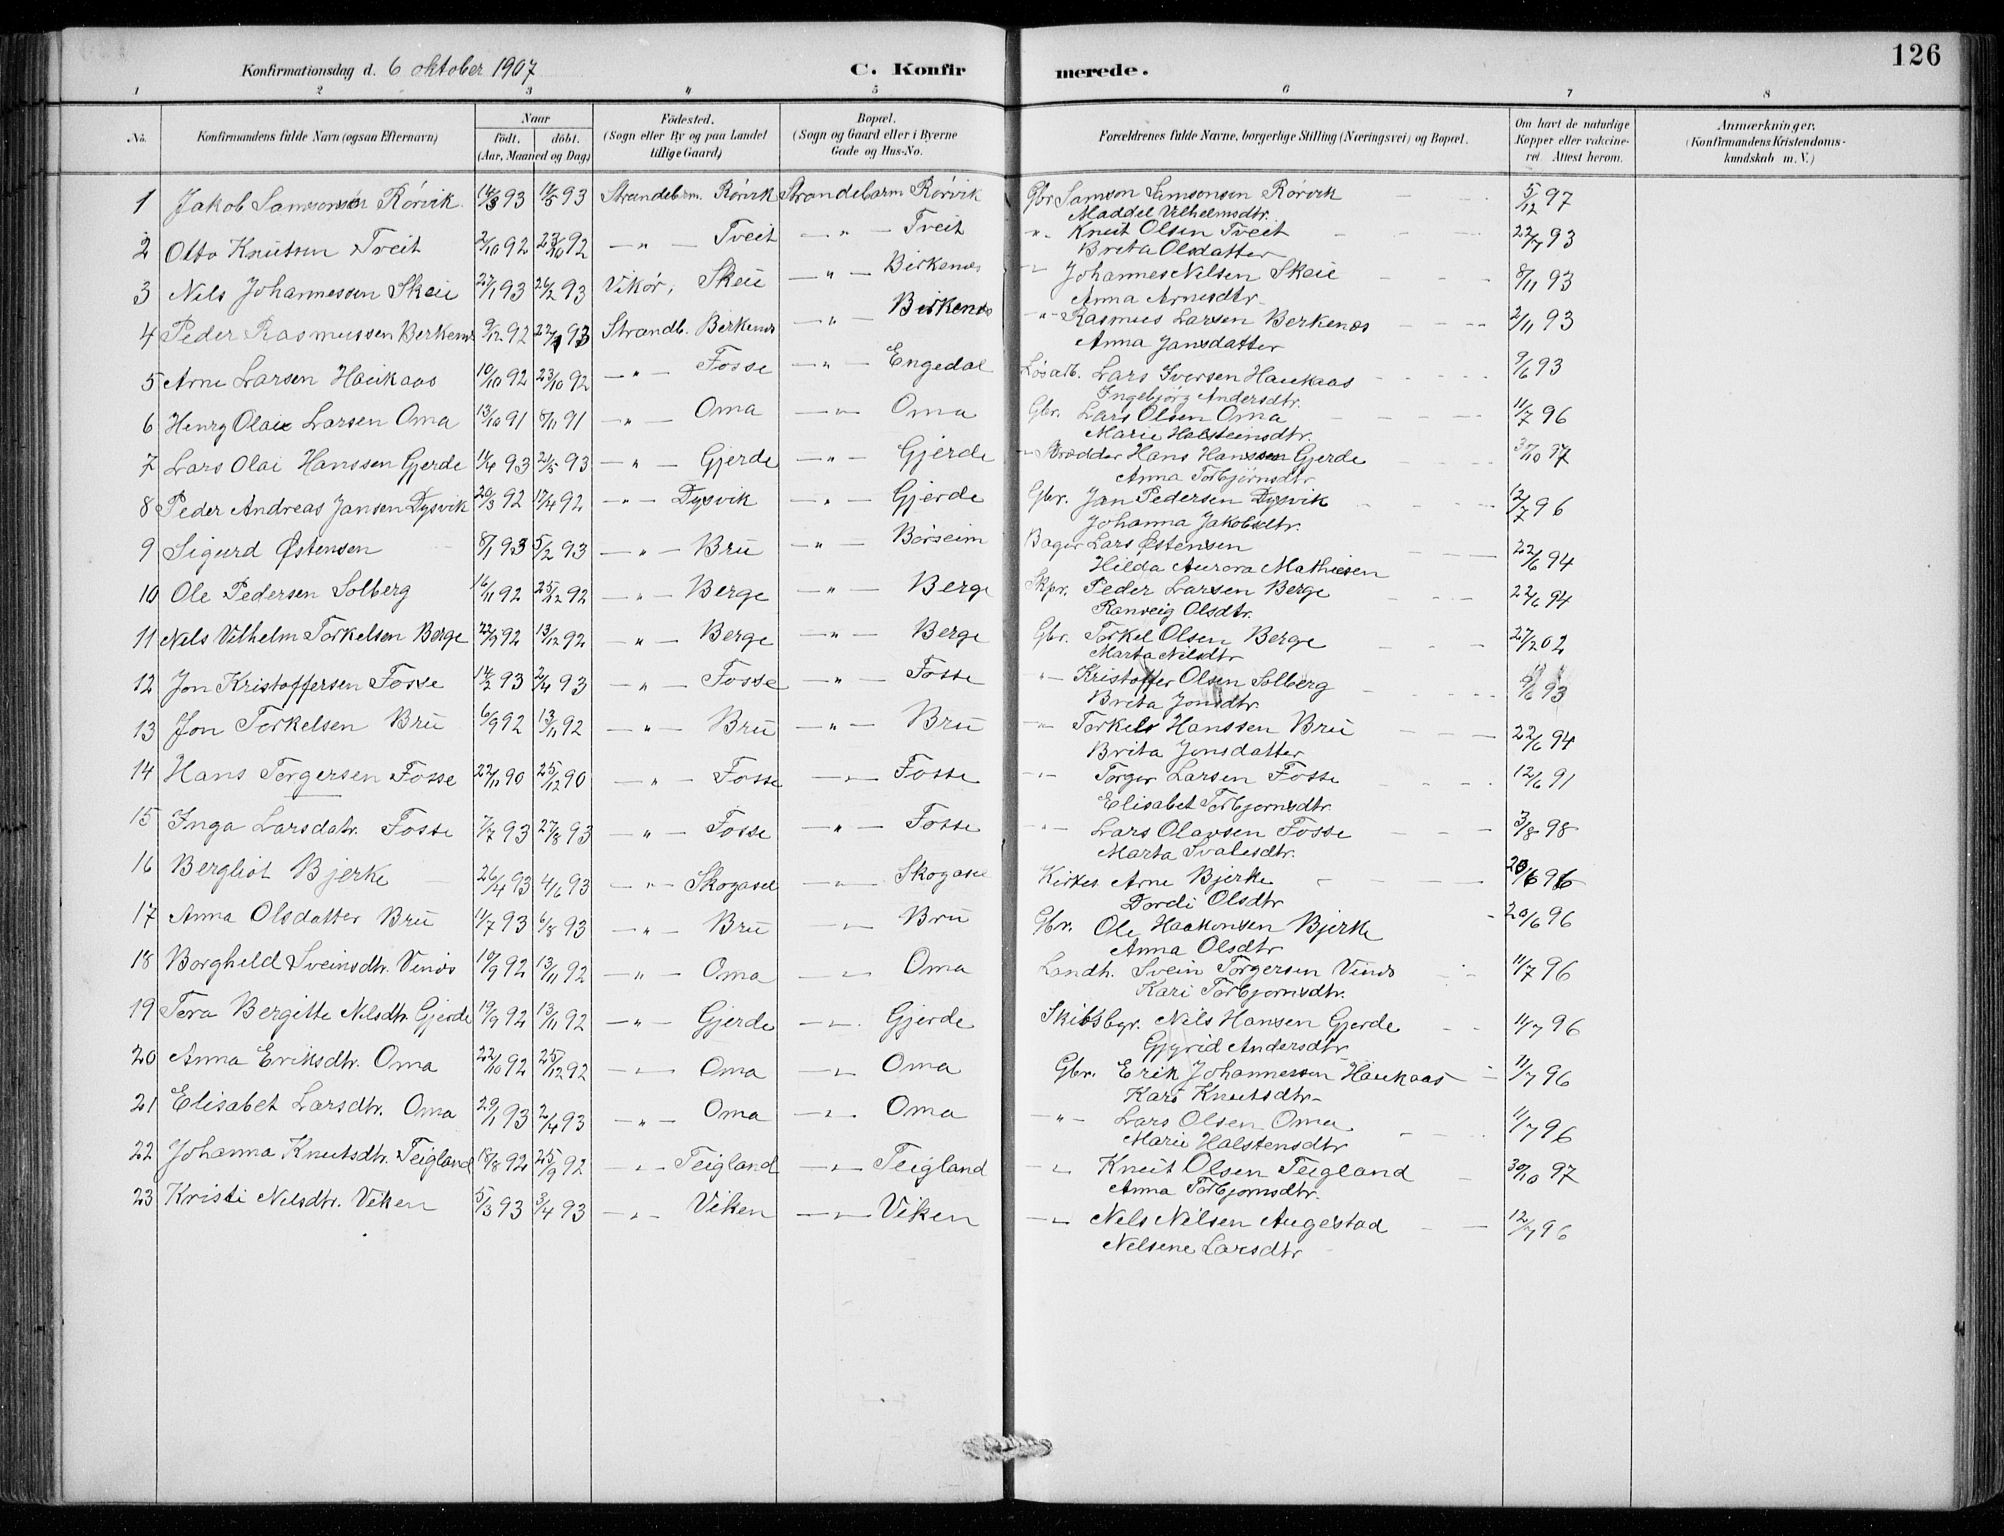 126
Konfirmationsdag d. 6 oktober 1907 C. Konfir merede.
1 2 3 4 5 6 7 8
No. Konfirmandens fulde Navn (ogsaa Efternavn) Naar födt. döbt. (Aar, Maaned og Dag) Födested. (Sogn eller By og paa Landet tillige Gaard) Bopæl. (Sogn og Gaard eller i Byerne Gade og Hus-No. Forældrenes fulde Navne, borgerlige Stilling (Næringsvei) og Bopæl. Om havt de naturlige Kopper eller vakcineret. Attest herom. Anmærkninger. (Konfirmandens Kristendomskundskab m. V.)
1 Jakob Samsonsen Rørvik 14/3 93 14/5 93 Strandebarm. Rørvik Strandebarm Rørvik Gbr Samson Samsonsen Rørvik 5/12 97
Maddel Vilhelmsdtr.
2 Otto Knutsen Tveit 2/10 92 23/10 92 — " — Tveit — " — Tveit " Knut Olsen Tveit 22/7 93
Brita Olsdatter
3 Nels Johannessen Skeie 27/1 93 26/2 93 Vikør, Skeie — " — Berkenes " Johannes Nelsen Skeie 8/11 93
Anna Arnesdtr
4 Peder Rasmussen Berkenes 9/12 92 22/1 93 Strandb. Berkenes — " — Birkenes " Rasmus Larsen Berkenæs 2/11 93
Anna Jansdatter
5 Arne Larsen Haukaas 10/10 92 23/10 92 — " — Fosse — " — Engedal Løsarb. Lars Iversen Haukaas 9/6 93
Ingebjørg Andersdtr.
6 Henry Olai Larsen Oma 13/10 91 8/11 91 — " — Oma — " — Oma Gbr. Lars Olsen Oma 11/7 96
Marie Halsteinsdtr.
7 Lars Olai Hanssen Gjerde 14/4 93 21/5 93 — " — Gjerde — " — Gjerde " Brædder Hans Hanssen Gjerde 30/10 97
Anna Torbjørnsdtr
8 Peder Andreas Jansen Dysvik 20/3 92 17/4 92 — " — Dysvik — " — Gjerde Gbr. Jan Pedersen Dysvik 12/7 96
Johanna Jakobsdtr.
9 Sigurd Østensen 8/1 93 5/2 93 — " — Bru — " — Børseim Bager Lars Østensen 22/6 94
Hilda Aurora Mathiesen
10 Ole Pedersen Solberg 16/11 92 25/12 92 — " — Berge — " — Berge Skpr. Peder Larsen Berge 22/6 94
Ranveig Olsdtr.
11 Nels Vilhelm Torkelsen Berge 22/9 92 13/12 92 — " — Berge — " — Berge Gbr. Torkel Olsen Berge 27/2 02
Marta Nilsdtr
12 Jon Kristoffersen Fosse 14/2 93 2/4 93 — " — Fosse — " — Fosse " Kristoffer Olsen Solberg 9/6 93
Brita Jonsdtr.
13 Jon Torkelsen Bru 6/9 92 13/11 92 — " — Bru — " — Bru " Torkels Hanssen Bru 22/6 94
Brita Jonsdatter
14 Hans Torgersen Fosse 22/11 90 25/12 90 — " — Fosse — " — Fosse " Torger Larsen Fosse 12/6 91
Elisabet Torbjornsdtr.
15 Inga Larsdatr. Fosse 7/7 93 27/8 93 — " — Fosse — " — Fosse " Lars Olavsen Fosse 3/8 98
Marta Svalesdtr.
16 Bergliot Bjerke 26/4 93 4/6 93 — " — Skogasel — " — Skogasel Kirkes Arne Bjerke 20/6 96
Dordi Olsdtr
17 Anna Olsdatter Bru 11/7 93 6/8 93 — " — Bru — " — Bru Gbr. Ole Haakonsen Bjerke 20/6 96
Anna Olsdtr
18 Borghild Sveinsdtr. Venös 10/9 92 13/11 92 — " — Oma — " — Oma Landh. Svein Torgersen Vinös 11/7 96
Kari Torbjornsdtr.
19 Tora Bergitte Nelsdtr. Gjerde 19/9 92 13/11 92 — " — Gjerde — " — Gjerde Skibsbgr. Nils Hansen Gjerde 11/7 96
Gjyrid Andersdtr
20 Anna Eriksdtr. Oma 22/10 92 25/12 92 — " — Oma — " — Oma Gbr. Erik Johannessen Haukaas 11/7 96
Kari Knutsdtr
21 Elisabet Larsdtr. Oma 29/1 93 2/4 93 — " — Oma — " — Oma — " Lars Olsen Oma 11/7 96
Marie Halstensdtr
22 Johanna Knutsdtr. Teigland 18/8 92 25/9 92 — " — Teigland — " — Teigland — " Knut Olsen Teigland 30/10 97
Anna Torbjornsdtr.
23 Kristi Nelsdtr. Viken 5/3 93 3/4 93 — " — Viken — " — Viken — " Nels Nilsen Augestad 12/7 96
Nelsene Larsdtr